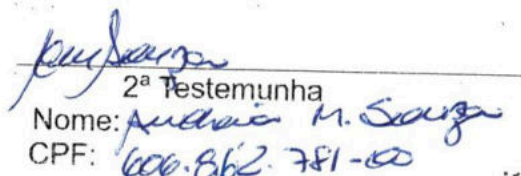 2ª Testemunha
Nome: Andreia M. Souza
CPF: 606.862.781-00